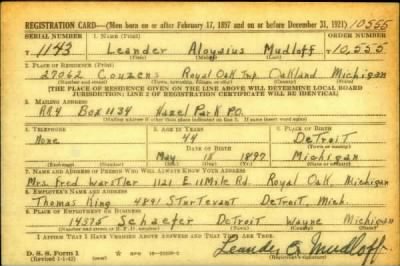 REGISTRATION CARD—(Men born on or after February 17, 1897 and on or before December 31, 1921) 10555
SERIAL NUMBER 1. NAME (Print) ORDER NUMBER
T 1143 Leander Aloysius Mudloff T10,555
(First) (Middle) (Last)
2. PLACE OF RESIDENCE (Print)
27062 Couzens Royal Oak Twp. Oakland Michigan
(Number and street) (Town, township, village, or city) (County) (State)
[THE PLACE OF RESIDENCE GIVEN ON THE LINE ABOVE WILL DETERMINE LOCAL BOARD
JURISDICTION; LINE 2 OF REGISTRATION CERTIFICATE WILL BE IDENTICAL]
3. MAILING ADDRESS
RR4 Box 1134 Hazel Park P.O.
[Mailing address if other than place indicated on line 2. If same insert word same]
4. TELEPHONE 5. AGE IN YEARS 6. PLACE OF BIRTH
None 44 Detroit
DATE OF BIRTH (Town or county)
May 18 1897 Michigan
(Exchange) (Number) (Mo.) (Day) (Yr.) (State or country)
7. NAME AND ADDRESS OF PERSON WHO WILL ALWAYS KNOW YOUR ADDRESS
Mrs. Fred Warstler 1121 E 11 Mile Rd. Royal Oak, Michigan
8. EMPLOYER'S NAME AND ADDRESS
Thomas King 4891 Sturtevant Detroit, Mich.
9. PLACE OF EMPLOYMENT OR BUSINESS
14375 Schaefer Detroit Wayne Michigan
(Number and street or R. F. D. number) (Town) (County) (State)
I AFFIRM THAT I HAVE VERIFIED ABOVE ANSWERS AND THAT THEY ARE TRUE.
D. S. S. Form 1
(Revised 1-1-42) (over) Leander A. Mudloff